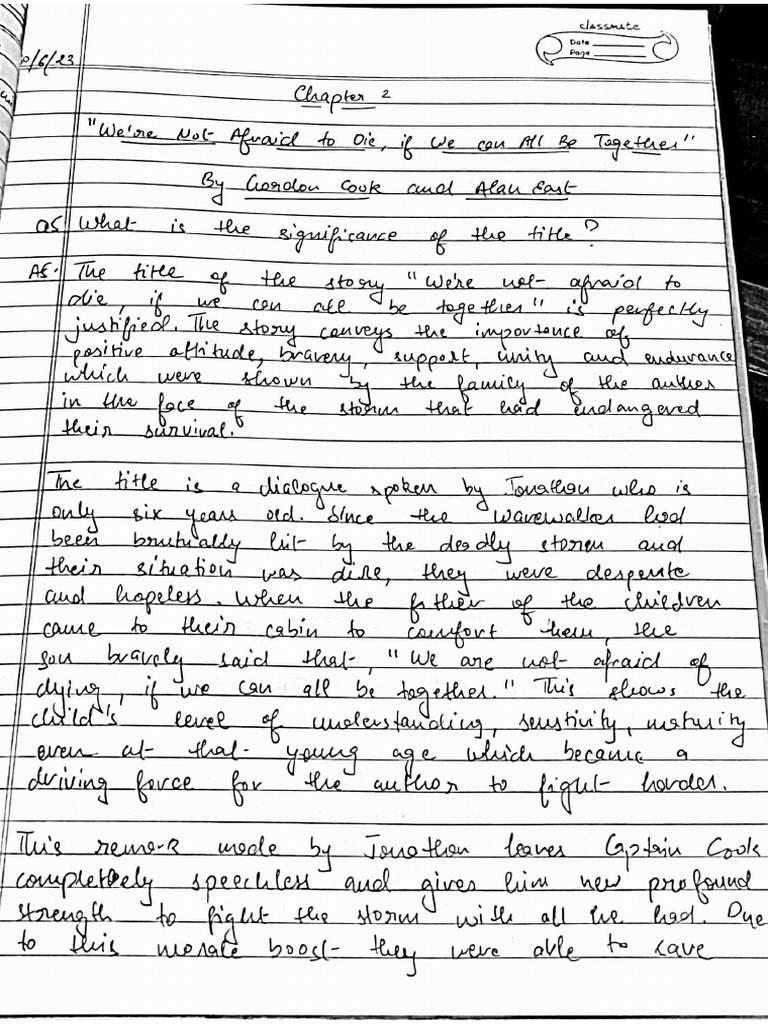 classmate
Date
Page
/6/23
Chapter 2
"We're Not Afraid to Die, if We can All Be Together"
By Gordon Cook and Alan East
Q5 What is the significance of the title?
A5. The title of the story "We're not afraid to
die, if we can all be together" is perfectly
justified. The story conveys the importance of
positive attitude, bravery, support, unity and endurance
which were shown by the family of the author
in the face of the storm that had endangered
their survival.
The title is a dialogue spoken by Jonathan who is
only six years old. Since the wavewalker had
been brutually hit by the deadly storm and
their situation was dire, they were desperate
and hopeless. When the father of the children
came to their cabin to comfort them, the
son bravely said that, "We are not afraid of
dying, if we can all be together." This shows the
child's level of understanding, senstivity, maturity
even at that young age which became a
driving force for the author to fight harder.
This remark made by Jonathan leaves Captain Cook
completely speechless and gives him new profound
strength to fight the storm with all he had. Due
to this morale boost they were able to save